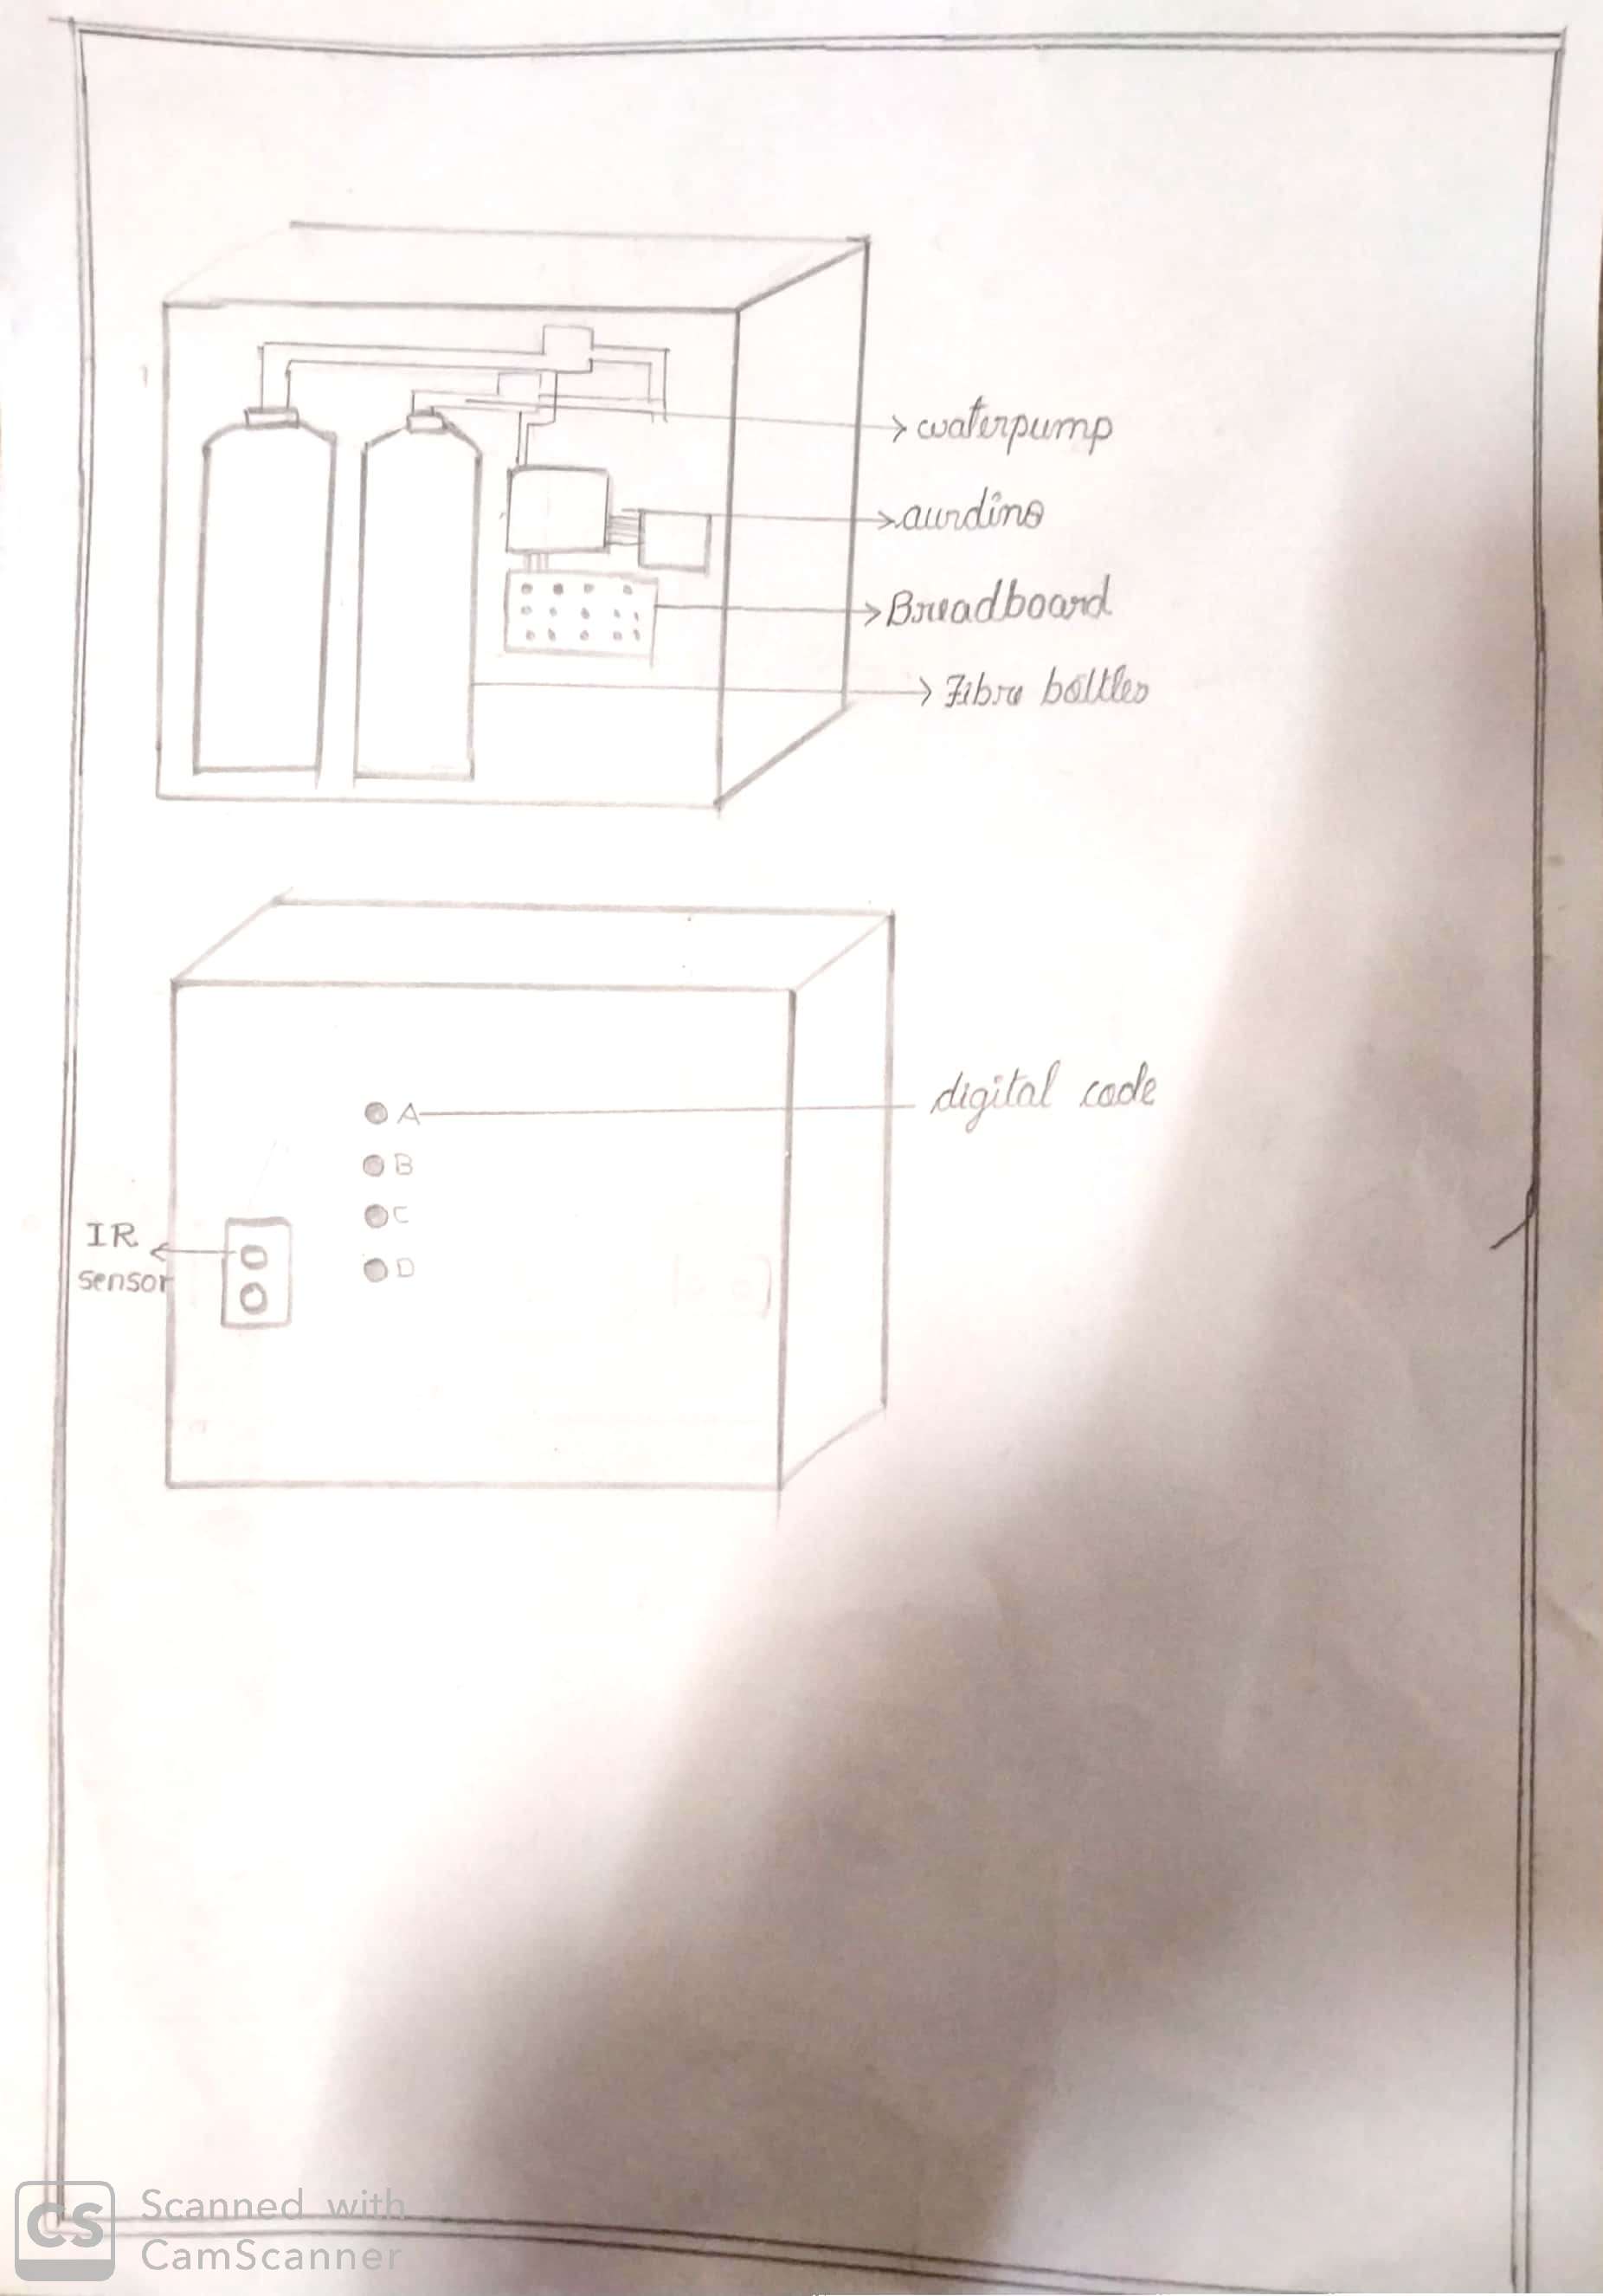 waterpump
aurdino
Breadboard
Fibre bottles
digital code
A
B
C
D
IR
sensor
CS
Scanned with
CamScanner